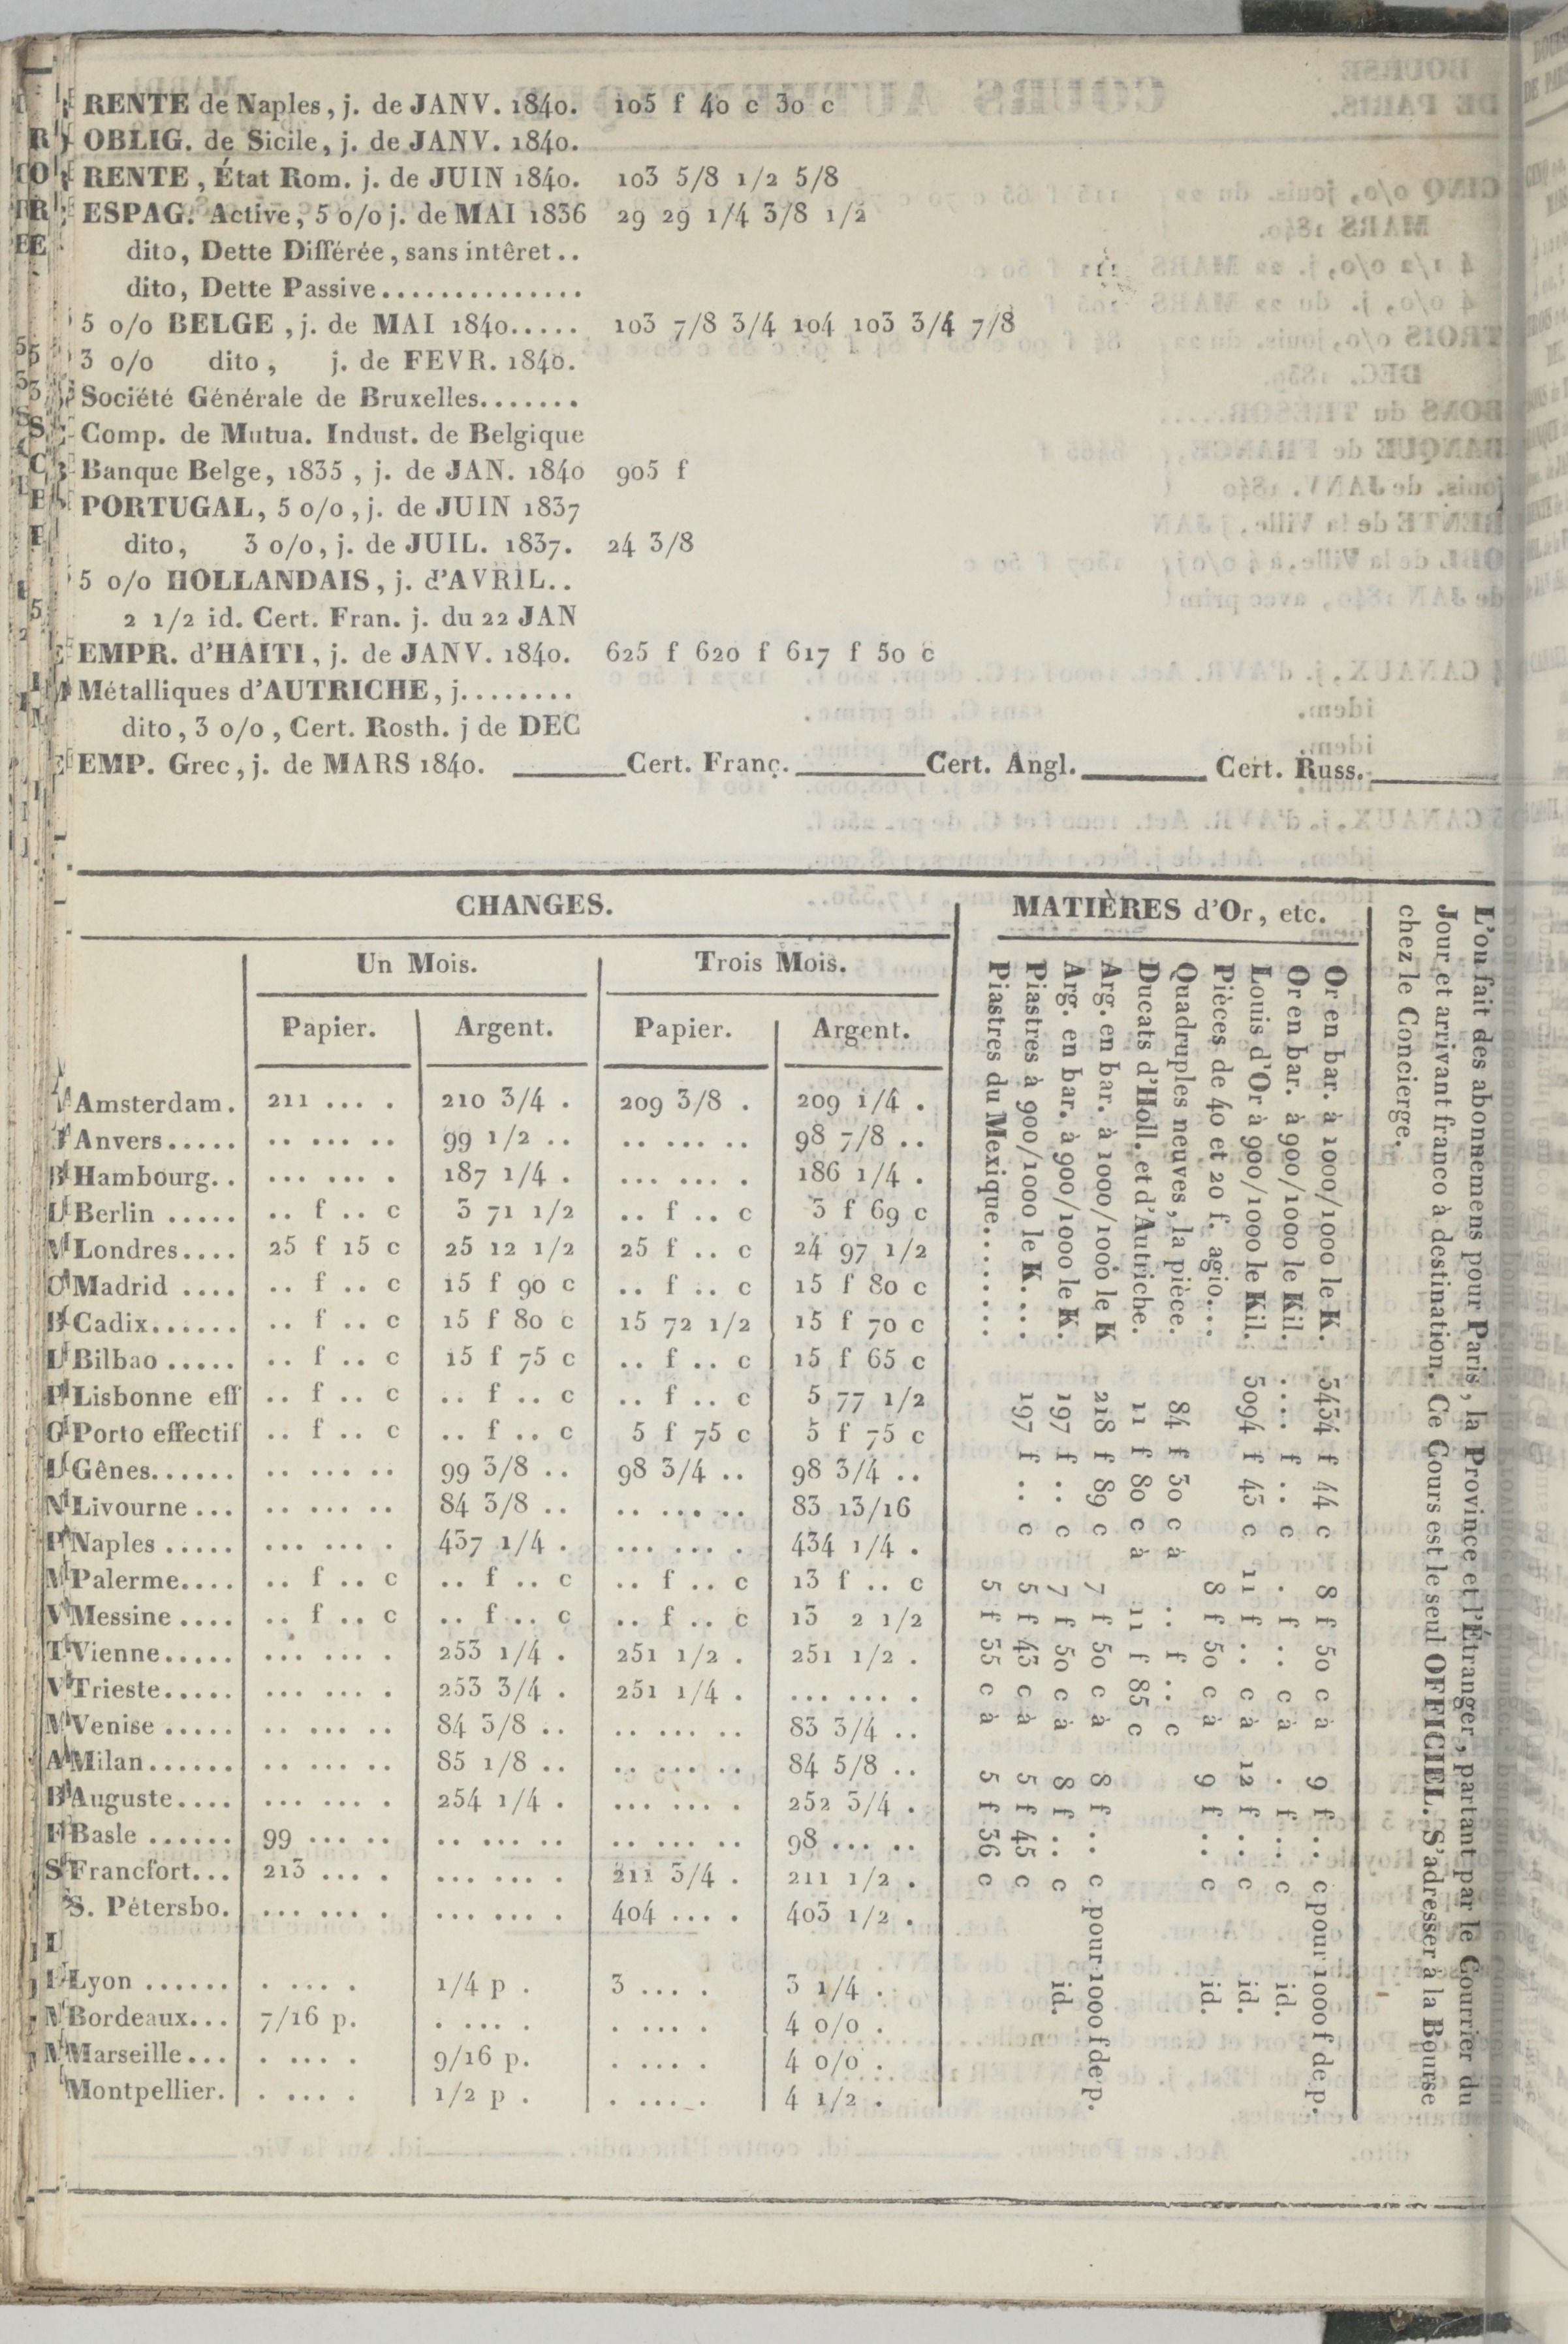 RENTE de Naples, j. de JANV. 1840. 105 f 40 c 30 c
OBLIG. de Sicile, j. de JANV. 1840.
RENTE, État Rom. j. de JUIN 1840. 103 5/8 1/2 5/8
ESPAG. Active, 5 o/o j. de MAI 1836 29 29 1/4 3/8 1/2
dito, Dette Différée, sans intêret..
dito, Dette Passive..............
5 o/o BELGE, j. de MAI 1840..... 103 7/8 3/4 104 103 3/4 7/8
3 o/o dito, j. de FEVR. 1840.
Société Générale de Bruxelles.......
Comp. de Mutua. Indust. de Belgique
Banque Belge, 1835, j. de JAN. 1840 905 f
PORTUGAL, 5 o/o, j. de JUIN 1837
dito, 3 o/o, j. de JUIL. 1837. 24 3/8
5 o/o HOLLANDAIS, j. d'AVRIL..
2 1/2 id. Cert. Fran. j. du 22 JAN
EMPR. d'HAITI, j. de JANV. 1840. 625 f 620 f 617 f 50 c
Métalliques d'AUTRICHE, j........
dito, 3 o/o, Cert. Rosth. j de DEC
EMP. Grec, j. de MARS 1840. ______Cert. Franç.______Cert. Angl.______Cert. Russ.______
CHANGES.
Un Mois. Trois Mois.
Papier. Argent. Papier. Argent.
Amsterdam. 211 ... . 210 3/4 . 209 3/8 . 209 1/4 .
Anvers..... .. ... .. 99 1/2 .. .. ... .. 98 7/8 ..
Hambourg.. ... ... . 187 1/4 . ... ... . 186 1/4 .
Berlin ..... .. f .. c 3 71 1/2 .. f .. c 3 f 69 c
Londres.... 25 f 15 c 25 12 1/2 25 f .. c 24 97 1/2
Madrid .... .. f .. c 15 f 90 c .. f .. c 15 f 80 c
Cadix...... .. f .. c 15 f 80 c 15 72 1/2 15 f 70 c
Bilbao ..... .. f .. c 15 f 75 c .. f .. c 15 f 65 c
Lisbonne eff .. f .. c .. f .. c .. f .. c 5 77 1/2
Porto effectif .. f .. c .. f .. c 5 f 75 c 5 f 75 c
Gênes...... .. ... .. 99 3/8 .. 98 3/4 .. 98 3/4 ..
Livourne ... .. ... .. 84 3/8 .. .. ... .. 83 13/16
Naples ..... ... ... . 437 1/4 . ... ... . 434 1/4 .
Palerme.... .. f .. c .. f .. c .. f .. c 13 f .. c
Messine .... .. f .. c .. f .. c .. f .. c 13 2 1/2
Vienne..... ... ... . 253 1/4 . 251 1/2 . 251 1/2 .
Trieste..... ... ... . 253 3/4 . 251 1/4 . ... ... .
Venise ..... .. ... .. 84 3/8 .. .. ... .. 83 3/4 ..
Milan...... .. ... .. 85 1/8 .. .. ... .. 84 5/8 ..
Auguste.... ... ... . 254 1/4 . ... ... . 252 3/4 .
Basle ...... 99 ... .. .. ... .. .. ... .. 98 ... ..
Francfort... 213 ... . ... ... . 211 3/4 . 211 1/2 .
S. Pétersbo. ... ... . ... ... . 404 ... . 403 1/2 .
Lyon ...... . ... . 1/4 p . 3 ... . 3 1/4 .
Bordeaux... 7/16 p. . ... . . ... . 4 o/o .
Marseille... . ... . 9/16 p. . ... . 4 o/o .
Montpellier. . ... . 1/2 p . . ... . 4 1/2 .
MATIÈRES d'Or, etc.
Or en bar. à 1000/1000 le K. 3434 f 44 c 8 f 50 c à 9 f .. c pour 1000 f de p.
Or en bar. à 900/1000 le Kil. .... f .. c . f .. c à . f .. c id.
Louis d'Or à 900/1000 le Kil.. 3094 f 43 c 11 f .. c à 12 f .. c id.
Pièces de 40 et 20 f. agio.... 8 f 50 c à 9 f .. c id.
Quadruples neuves, la pièce. 84 f 30 c à .. f .. c
Ducats d'Holl. et d'Autriche. 11 f 80 c à 11 f 85 c
Arg. en bar. à 1000/1000 le K 218 f 89 c 7 f 50 c à 8 f .. c pour 1000 f de p.
Arg. en bar. à 900/1000 le K. 197 f .. c 7 f 50 c à 8 f .. c id.
Piastres à 900/1000 le K.... 197 f .. c 5 f 43 c à 5 f 45 c
Piastres du Mexique........ 5 f 35 c à 5 f 36 c
L'on fait des abonnemens pour Paris, la Province et l'Étranger, partant par le Courrier du
Jour et arrivant franco à destination. Ce Cours est le seul OFFICIEL. S'adresser à la Bourse
chez le Concierge.